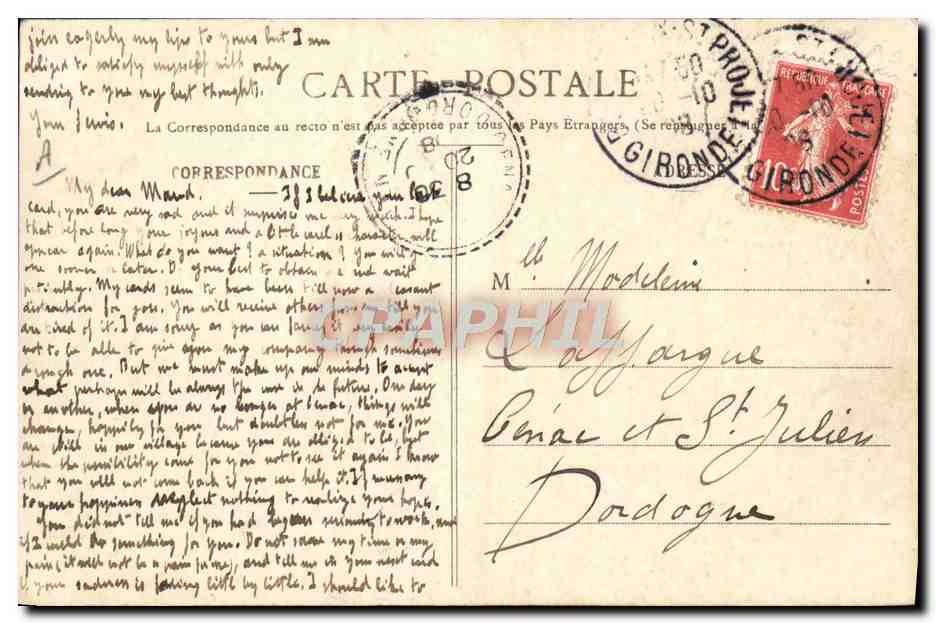 join eagerly my lips to yours but I am
obliged to satisfy myself with only
sending to you my best thoughts.
Your
A
CARTE POSTALE
La Correspondance au recto n'est pas acceptée par tous les Pays Etrangers. (Se renseigner à la
CORRESPONDANCE
ADRESSE
ST PROJET
GIRONDE
10
ST PROJET
GIRONDE
REPUBLIQUE FRANÇAISE
10
POSTES
DORDOGNE
8
20
My dear Maud. — If I believe your last
card, you are very sad and it surprises me very much. I hope
that before long your joyous and a little careless character will
appear again. What do you want? a situation? You will
one sooner or later. Do your best to obtain one and wait
patiently. My cards seem to have been till now a pleasant
distraction for you. You will receive others from me till you
are tired of it. I am sorry as you can fancy it
not to be able to give you my company though sometimes
a rough one. But we must make up our minds to accept
what perhaps will be always the case in the future. One day
or another, when you are no longer at Cénac, things will
change, happily for you but doubtless not for me. You
are still in our village because you are obliged to be, but
when the possibility come for you not to see it again I know
that you will not come back if you can help it. If necessary
to your happiness neglect nothing to realize your hopes.
You did not tell me if you had begun seriously to work, and
if I could do something for you. Do not spare my time or my
pain (it will not be a pain for me), and tell me in your next card
if your sadness is fading little by little. I should like to
Mlle Madeleine
Laffargue
Cénac et St. Julien
Dordogne
CPAPHIL